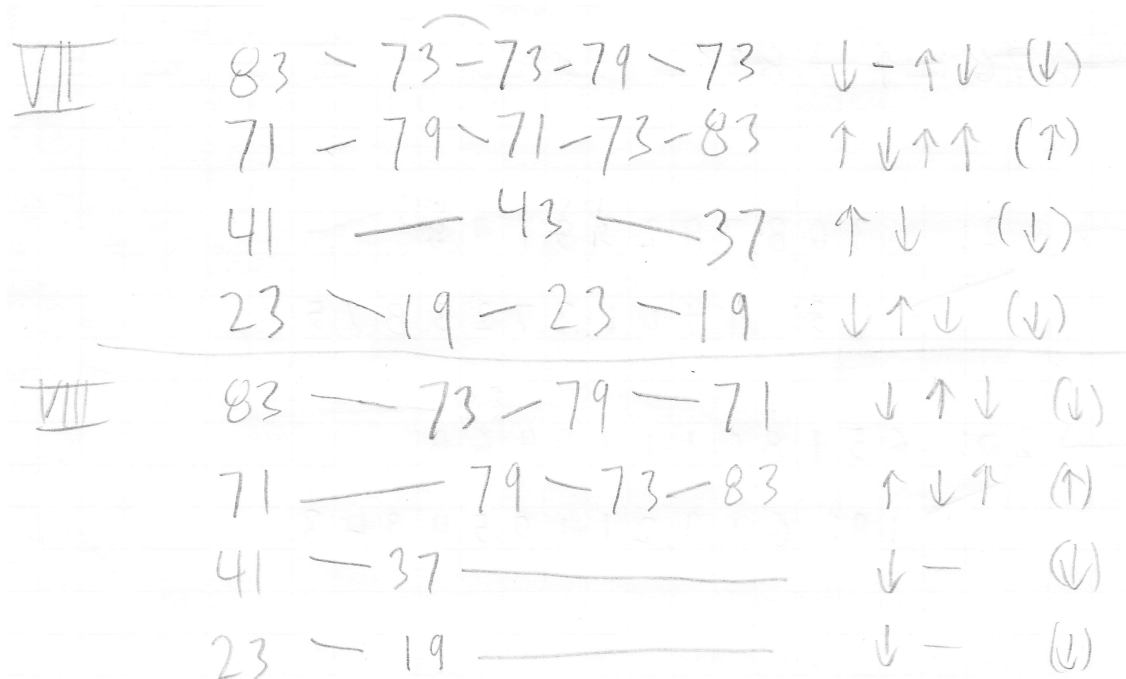 VII 83 \ 73 - 73 - 79 \ 73 ↓ - ↑ ↓ (↓)
71 - 79 \ 71 - 73 - 83 ↑ ↓ ↑ ↑ (↑)
41 — 43 — 37 ↑ ↓ (↓)
23 \ 19 - 23 - 19 ↓ ↑ ↓ (↓)
VIII 83 — 73 - 79 — 71 ↓ ↑ ↓ (↓)
71 — 79 - 73 - 83 ↑ ↓ ↑ (↑)
41 - 37 — ↓ - (↓)
23 - 19 — ↓ - (↓)